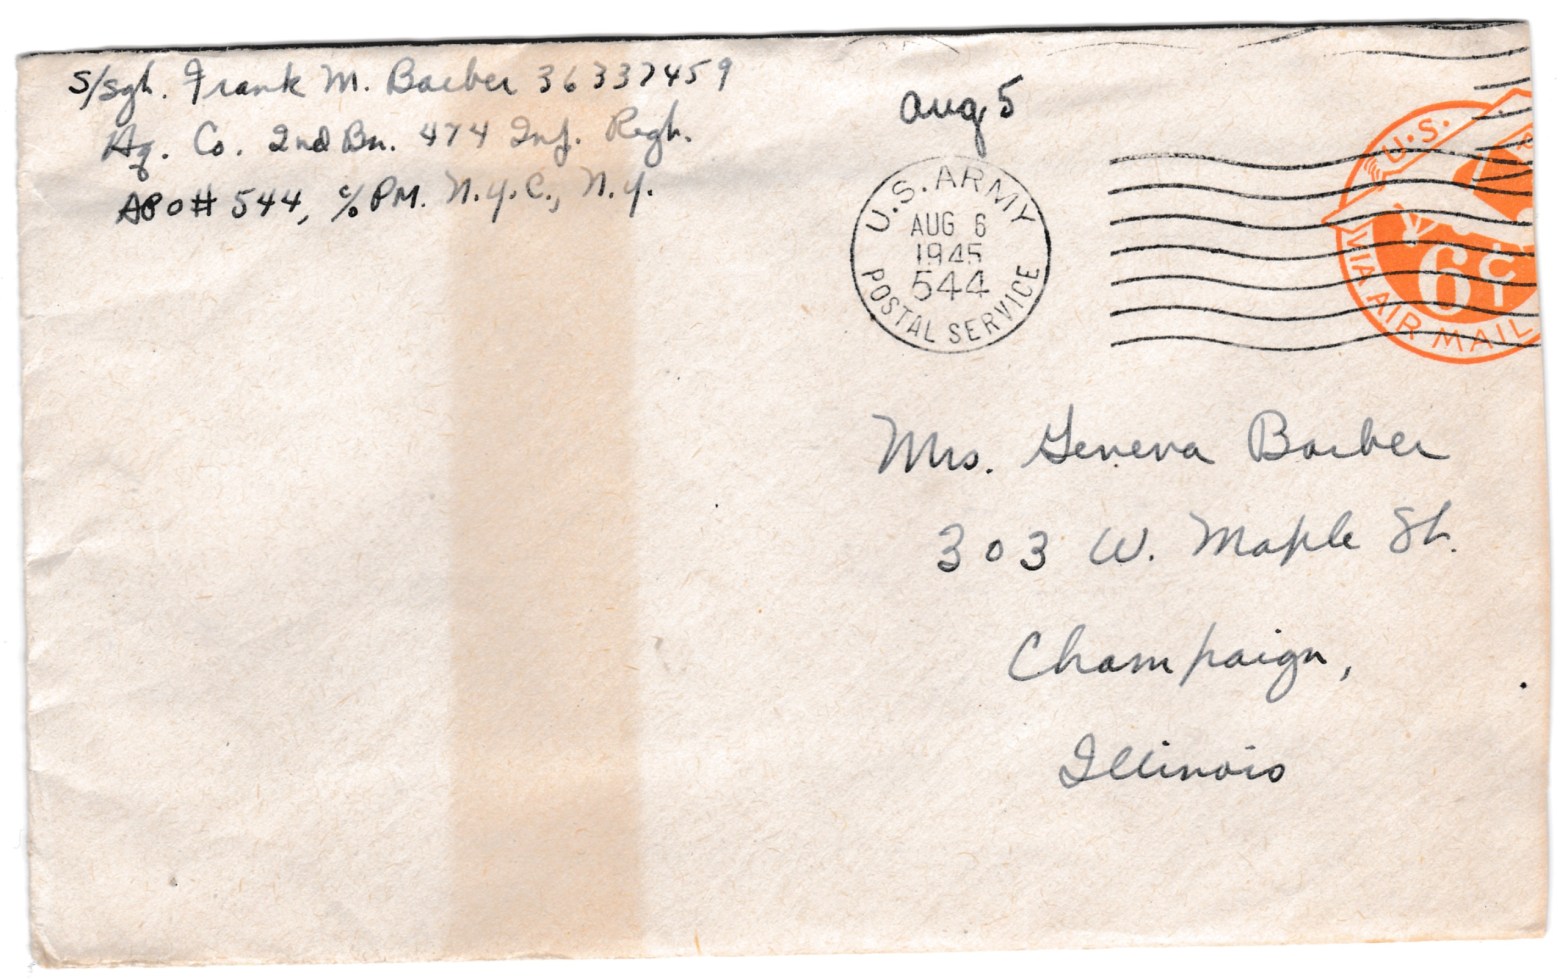 S/Sgt. Frank M. Barber 36337459
Hq. Co. 2nd Bn. 474 Inf. Regt.
APO # 544, c/o PM. N.Y.C., N.Y.
Aug 5
U.S. ARMY
AUG 6
1945
544
POSTAL SERVICE
U.S.
6¢
VIA AIR MAIL
Mrs. Geneva Barber
303 W. Maple St.
Champaign,
Illinois